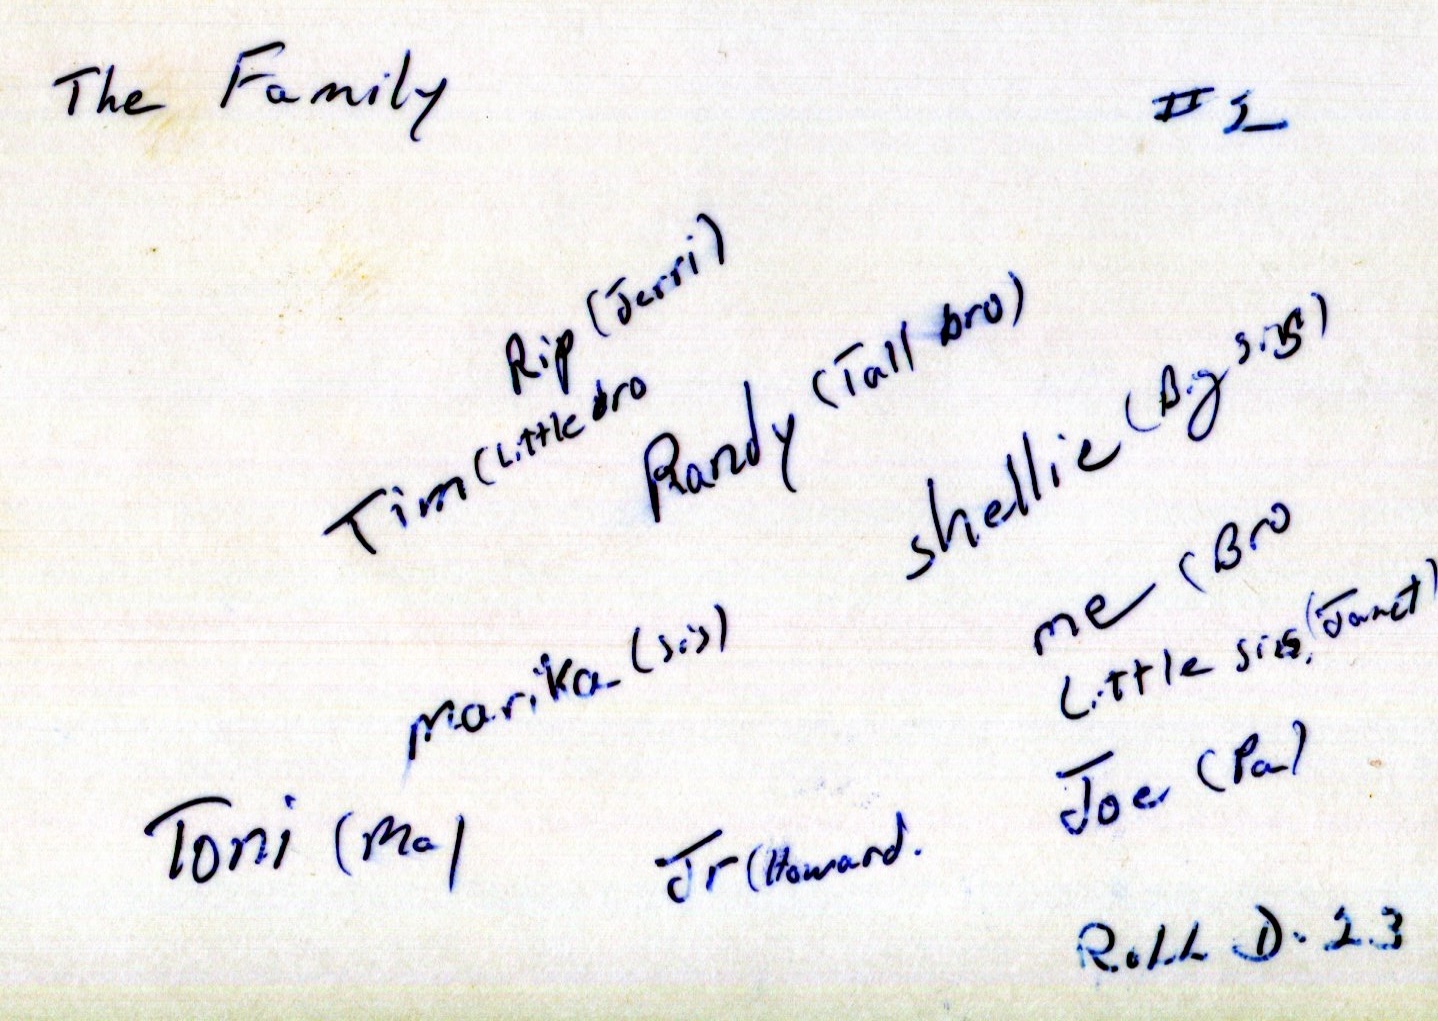 The Family
#1
Rip (Jerri)
Tim (Little bro
Randy (Tall bro)
Shellie (Big sis)
me (Bro
Little sis, (Janet)
Marika (sis)
Joe (Pa)
Toni (Ma)
Jr (Howard.
Roll D-23